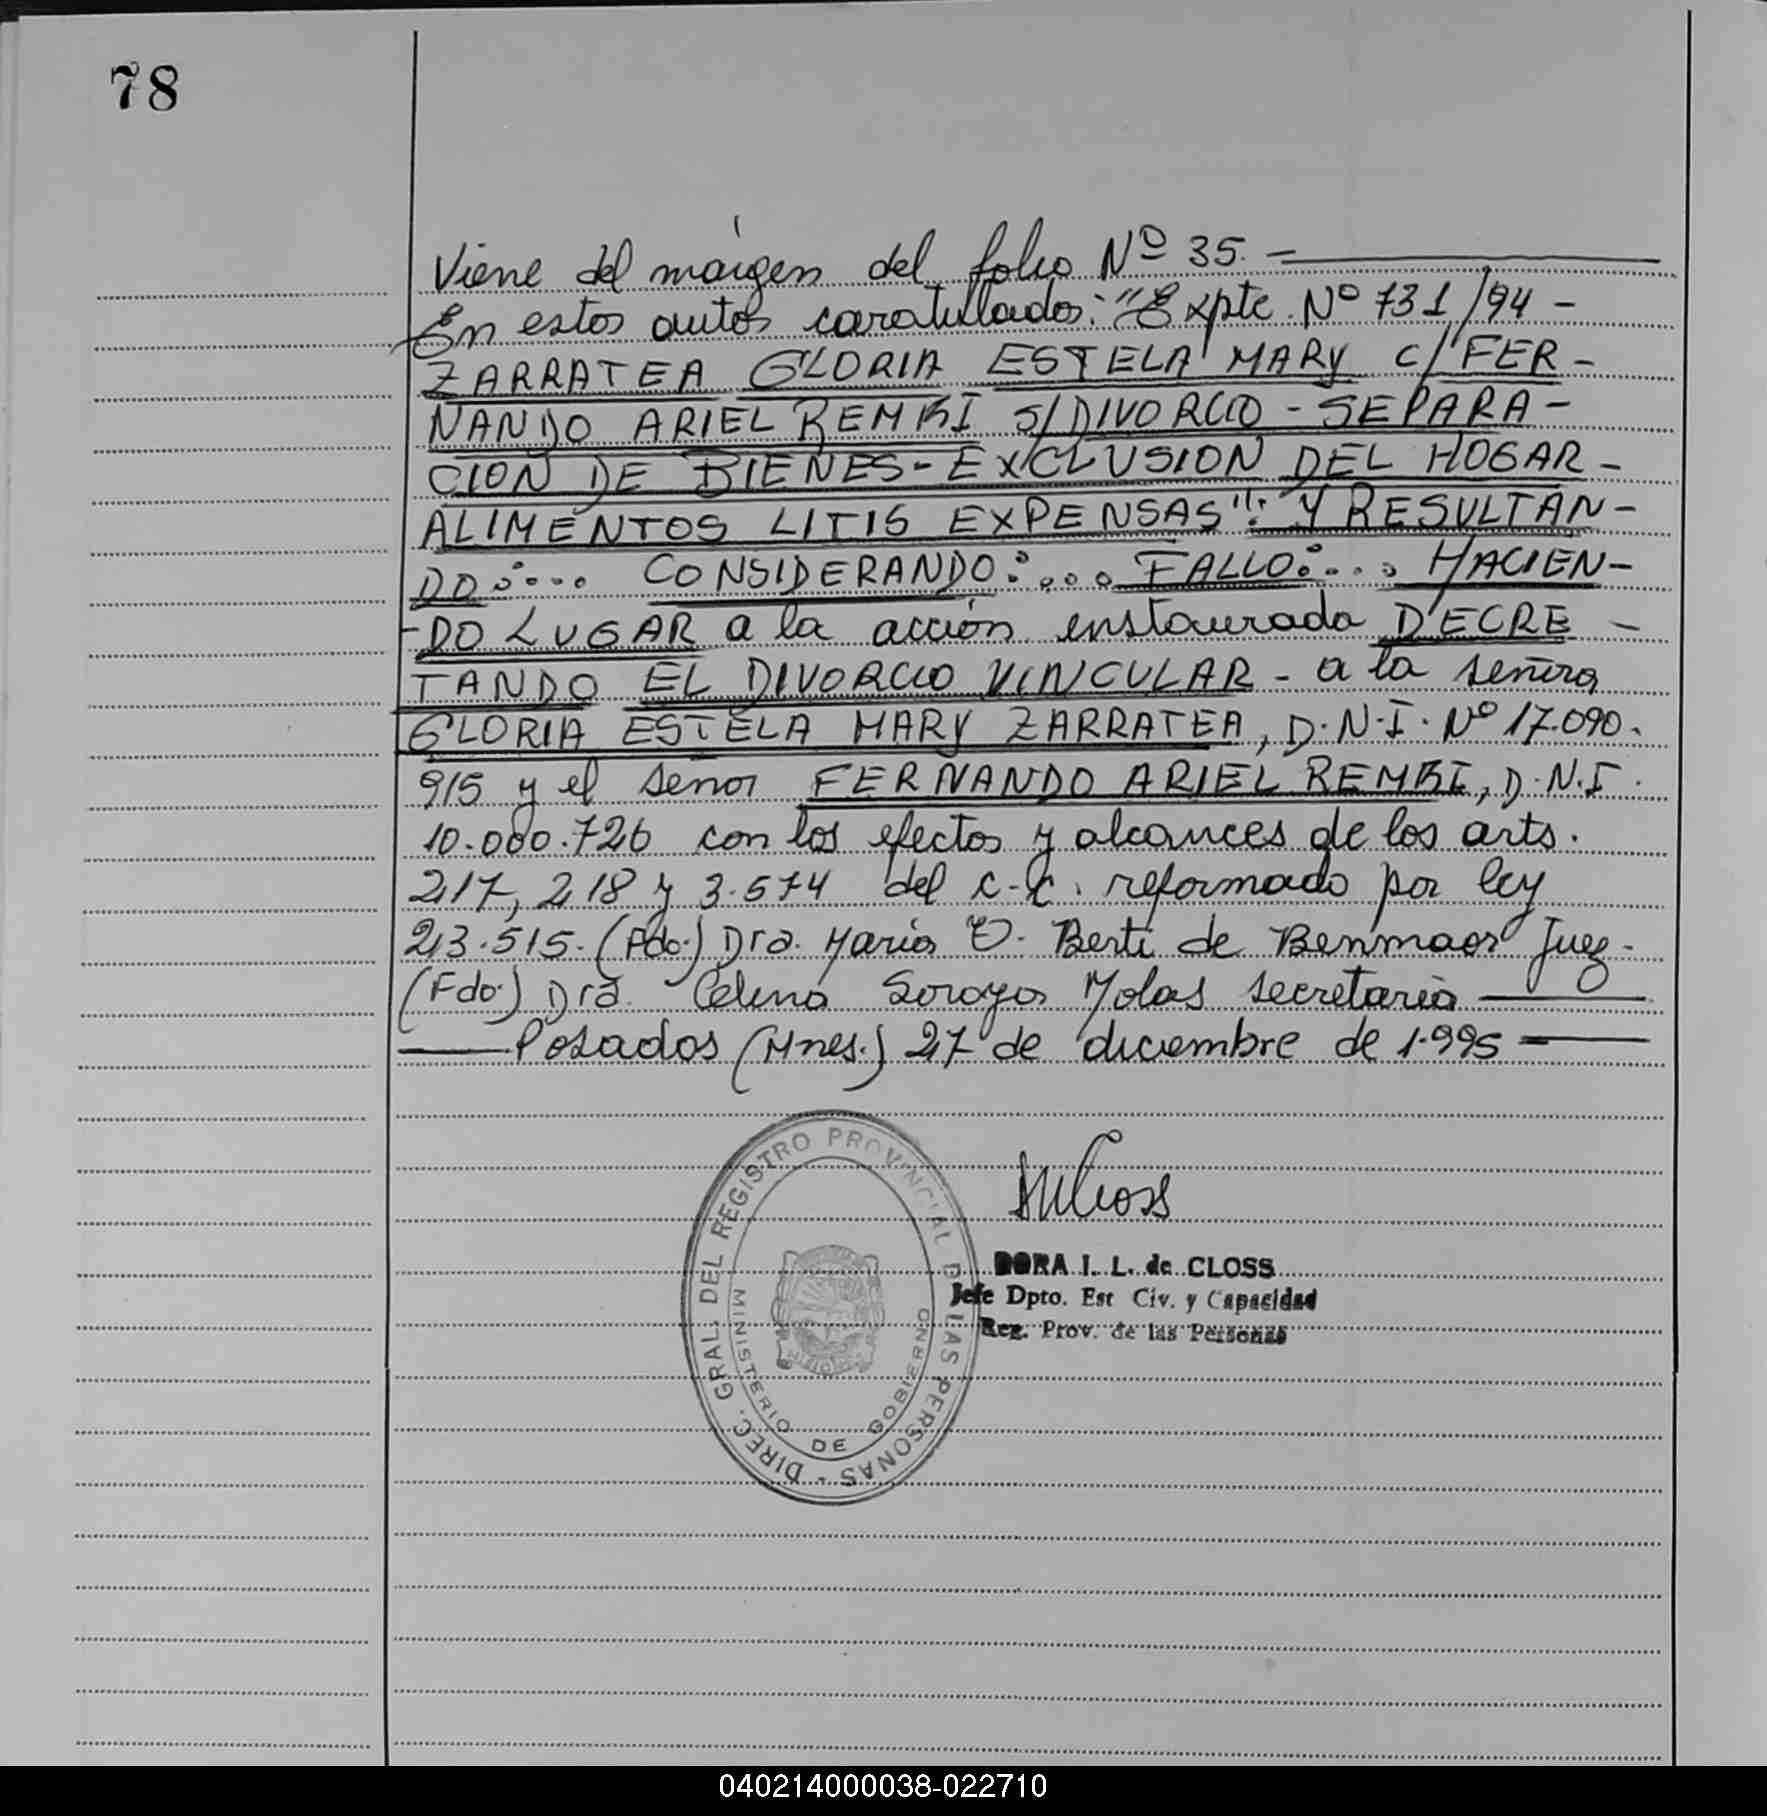 78
Viene del márgen del folio Nº 35. -
En estos autos caratulados: "Expte. Nº 731/94 -
ZARRATEA GLORIA ESTELA MARY C/ FER -
NANDO ARIEL REMBI S/ DIVORCIO - SEPARA -
CION DE BIENES - EXCLUSION DEL HOGAR -
ALIMENTOS LITIS EXPENSAS": Y RESULTAN -
DO:... CONSIDERANDO:... FALLO:... HACIEN -
-DO LUGAR a la acción instaurada DECRE -
TANDO EL DIVORCIO VINCULAR - a la señora
GLORIA ESTELA MARY ZARRATEA, D.N.I. Nº 17.090.
915 y el señor FERNANDO ARIEL REMBI, D.N.I.
10.000.726 con los efectos y alcances de los arts.
217, 218 y 3.574 del C.C. reformado por ley
23.515. (Fdo.) Dra. María E. Berti de Benmaor Juez -
(Fdo.) Dra. Celina Soraya Molas secretaria
Posadas (Mnes.) 27 de diciembre de 1.995
DIREC. GRAL. DEL REGISTRO PROVINCIAL DE LAS PERSONAS -
MINISTERIO DE GOBIERNO
DORA I. L. de CLOSS
Jefe Dpto. Est Civ. y Capacidad
Reg. Prov. de las Personas
040214000038-022710